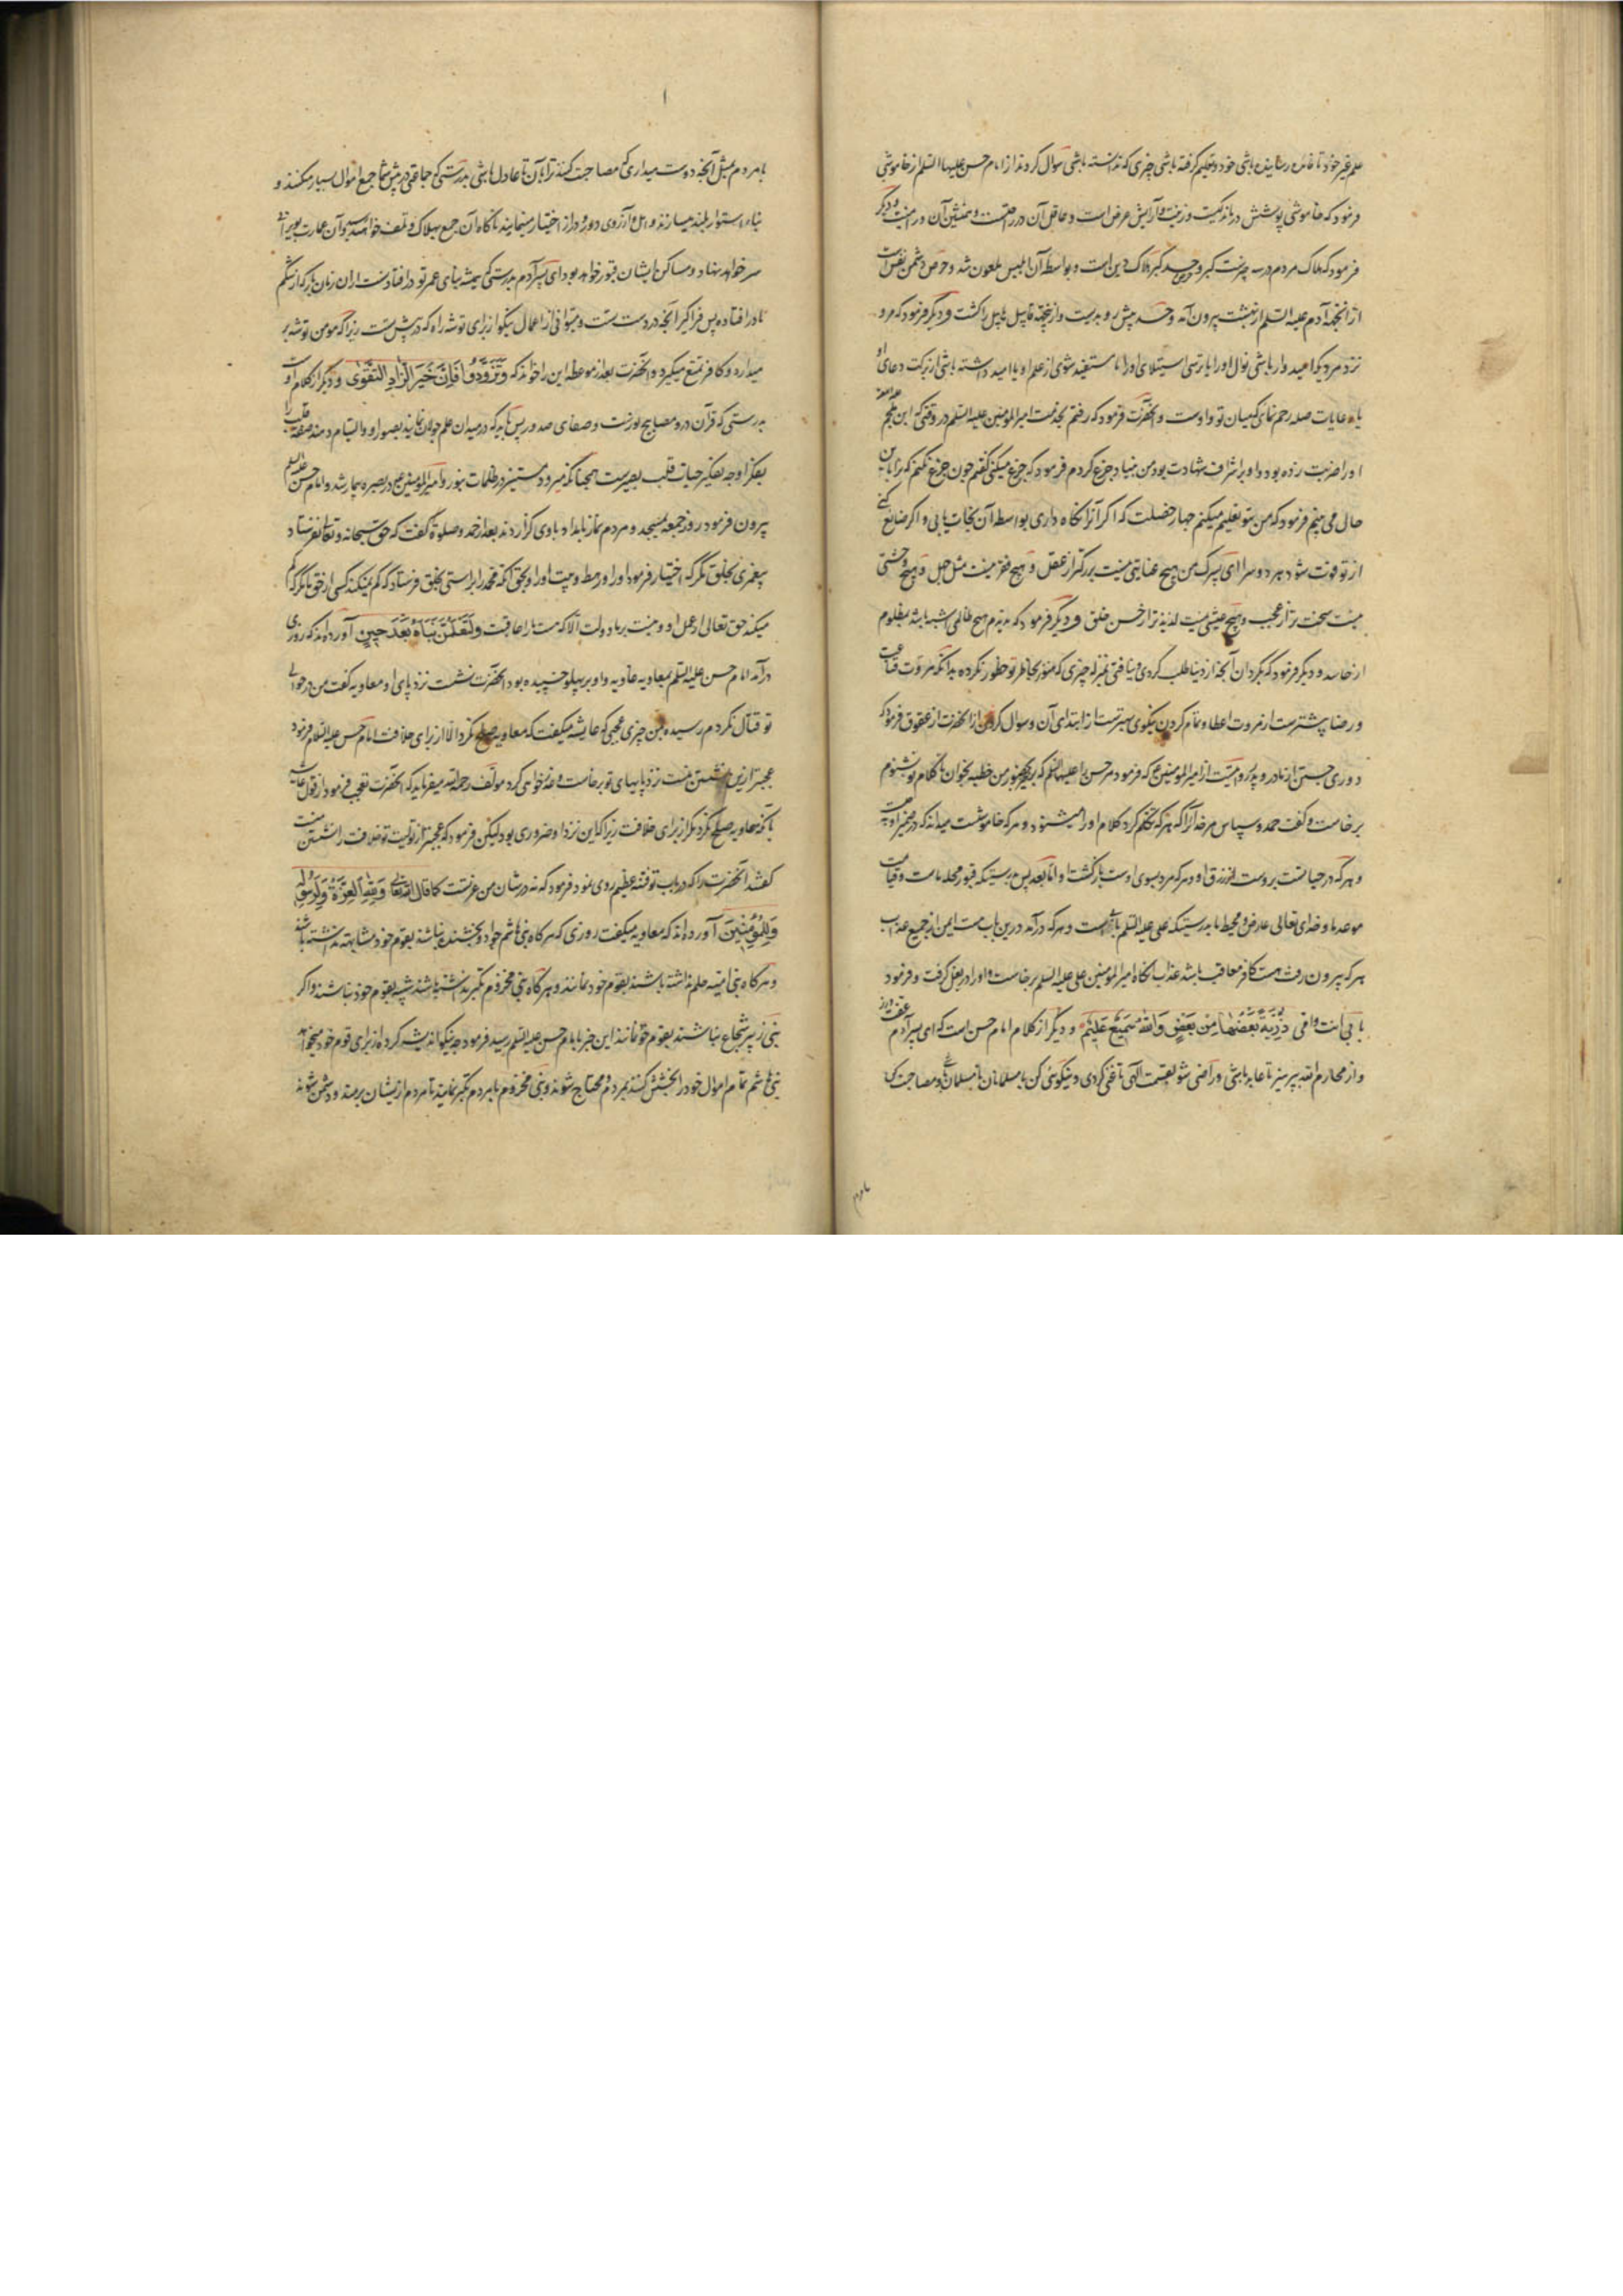 علم غیر خود تا فائده رسانیده باشی خود و تعلیم گرفته باشی چیزی که ندانسته باشی سؤال کردند از امام حسن علیهما السلم از خاموشی
فرمود که خاموشی پوشش درماندگیست و زینت و آرایش عرض است و عاقل آن در راحتست و همنشین آن در امنیت و دیگر
فرمود که هلاک مردم در سه چیزست کبر و حرص و حسد کبر هلاک دین است و بواسطه آن ابلیس ملعون شد و حرص دشمن نفس است
از آنجهة آدم علیه السلم از بهشت بیرون آمد و حسد پیش رو بدیست و از آنجهة قابیل هابیل را کشت و دیگر فرمود که مرو
نزد مرد دیگر امیدوار باشی نوال او را یا ترسی استیلای او را یا مستفید شوی از علم او یا امید داشته باشی از برکت دعای او
یا رعایات صله رحم نمای که میان تو و اوست و آنحضرت فرمود که رفتم بخدمت امیر المؤمنین علیه السلم در وقتی که ابن ملجم
او را ضربت زده بود و او بر اشراف شهادت بود من بنیاد جزع کردم فرمود که جزع میکنی گفتم چون جزع نکنم که ترا باین
حال می بینم فرمود که من بتو تعلیم میکنم چهار خصلت که اگر آنرا نگاه داری بواسطه آن نجات یابی و اگر ضایع کنی
از تو فوت شود هر دو سرا ای پسرک من هیچ غنایتی نیست بزرگتر از عقل و هیچ فقر نیست مثل جهل و هیچ وحشتی
نیست سخت تر از عجب و هیچ عیشی نیست لذیذتر از حسن خلق و دیگر فرمود که ندیدم هیچ ظالمی شبیه باشد بمظلوم
از حاسد و دیگر فرمود که بگردان آنچه از دنیا طلب کردی و نیافتی بمنزله چیزی که هنوز بخاطر تو خطور نکرده بدانکه مروت قناعت
و رضا بیشترست از مروت اعطا و تمام کردن نیکوی بهترست از ابتدای آن و سؤال کردند از آنحضرت از عقوق فرمود که
دوری جستن از مادر و پدر و مرویست از امیر المؤمنین ع که فرمود مر حسن را علیهما السلم که برخیز من خطبه بخوان تا کلام تو بشنوم
برخاست و گفت حمد و سپاس مر خدا را که هر که تکلم کرد کلام او را میشنود و هر که خاموشست میداند که در ضمیر او چیست
و هر که در حیاتست بروست رزق او و هر که مرد بسوی اوست بازگشت او اما بعد پس بدرستیکه قبور محله ماست و قیامت
موعد ما و خدای تعالی عارض و محیط ما بدرستیکه علی علیه السلم بابیست و هر که درآید درین باب هست ایمن از جمیع عذاب
هر که بیرون رفت هست کافر معاقب باشد عذاب آنگاه امیر المؤمنین علی علیه السلم برخاست و او را در بغل گرفت و فرمود
بابی انت و امی ذُرِّیَّةً بَعْضُهَا مِنْ بَعْضٍ وَاللّٰهُ سَمِیعٌ عَلِیمٌ و دیگر از کلام امام حسن است که ای پسر آدم عفت ورز
و از محارم الله بپرهیز تا عابد باشی و راضی شو بقسمت الهی تا غنی گردی و نیکوئی کن با مسلمانان تا مسلمان باشی و مصاحبت کن
با مردم
با مردم بمثل آنچه دوست میداری که مصاحبت کنند ترا بآن تا عادل باشی بدرستی که جماعتی در پیش شما جمع اموال بسیار میکنند و
بناء استوار بلند میسازند و امل و آرزوی دور و دراز اختیار مینمایند ناگاه آن جمع بهلاک و تلف خواهد رسید و آن عمارت بویرانی
سر خواهد نهاد و مساکن ایشان قبور خواهد بود ای پسر آدم بدرستی که همیشه بنای عمر تو در افتادنست از آن زمان باز که از شکم
مادر افتاده پس فراگیر آنچه در دست تست و میتوانی از اعمال نیکو از برای توشه راه که در پیش تست زیرا که مومن توشه بر
میدارد و کافر تمتع میگیرد و آنحضرت بعد از موعظه این را خواند که وَتَزَوَّدُوا فَاِنَّ خَیْرَ الزَّادِ التَّقْوٰی و دیگر از کلام اوست
بدرستی که قرآن درو مصابیح نورست و صفای صدور پس باید که در میدان علم جولان نماید بضو او و التیام دهند صفت قلب را
بفکر او چه تفکر حیات قلب بصیرست همچنانکه میرود مستنیر در ظلمات بنور و امیر المؤمنین ع در بصره بیمار شد و امام حسن علیه السلم
بیرون فرمود روز جمعه بمسجد و مردم نماز بامداد باوی گزاردند بعد از حمد و صلوة گفت که حق سبحانه و تعالی نفرستاد
پیغمبری بخلق مگر که اختیار فرمود او را و رهط و بیت او را و بحق آنکه محمد را براستی بخلق فرستاد که کم نمیکند کسی از حق ما مگر که کم
میکند حق تعالی از عمل او و نیست بر ما دولت الا که هست ما را عاقبت وَلَتَعْلَمُنَّ نَبَاَهُ بَعْدَ حِینٍ آورده اند که روزی
درآمد امام حسن علیه السلم بمعاویه غاویه و او بر پهلو خسپیده بود آنحضرت نشست نزد پای او معاویه گفت من در حوالی
تو قتال نکردم رسیده بمن چیزی عجبی که عایشه میگفت که معاویه صلح نکرد الا از برای خلافت امام حسن علیه السلام فرمود
عجبتر ازین نشستن منست نزد پایهای تو برخاست و عذرخواهی کرد مولف رحمه الله میفرماید که آنحضرت تعجب فرمود از قول عایشه
با آنکه معاویه صلح نکرد مگر از برای خلافت زیرا که این نزد او ضروری بود لیکن فرمود که عجبتر از تولیت تو خلافت را نشستن منست
گفتند آنحضرت را که در باب تو فتنه عظیم روی نمود فرمود که نه در شان من عزتست کما قال الله تعالی وَلِلّٰهِ الْعِزَّةُ وَلِرَسُولِهِ
وَلِلْمُؤْمِنِینَ آورده اند که معاویه میگفت روزی که هرگاه بنی هاشم جواد و بخشنده نباشند بقوم خود مشابهة نداشته باشند
و هرگاه بنی امیه حلم نداشته باشند بقوم خود نمانند و هرگاه بنی مخزوم تکبر نداشته باشند شبیه بقوم خود نباشند و اگر
بنی زبیر شجاع نباشند بقوم خود نمانند این خبر بامام حسن علیه السلم رسید فرمود چه نیکو اندیشه کرده از برای قوم خود میخواهد
بنی هاشم تمام اموال خود را بخشش کنند بمردم و محتاج شوند و بنی مخزوم با مردم تکبر نمایند تا مردم ازیشان برمند و دشمن شوند